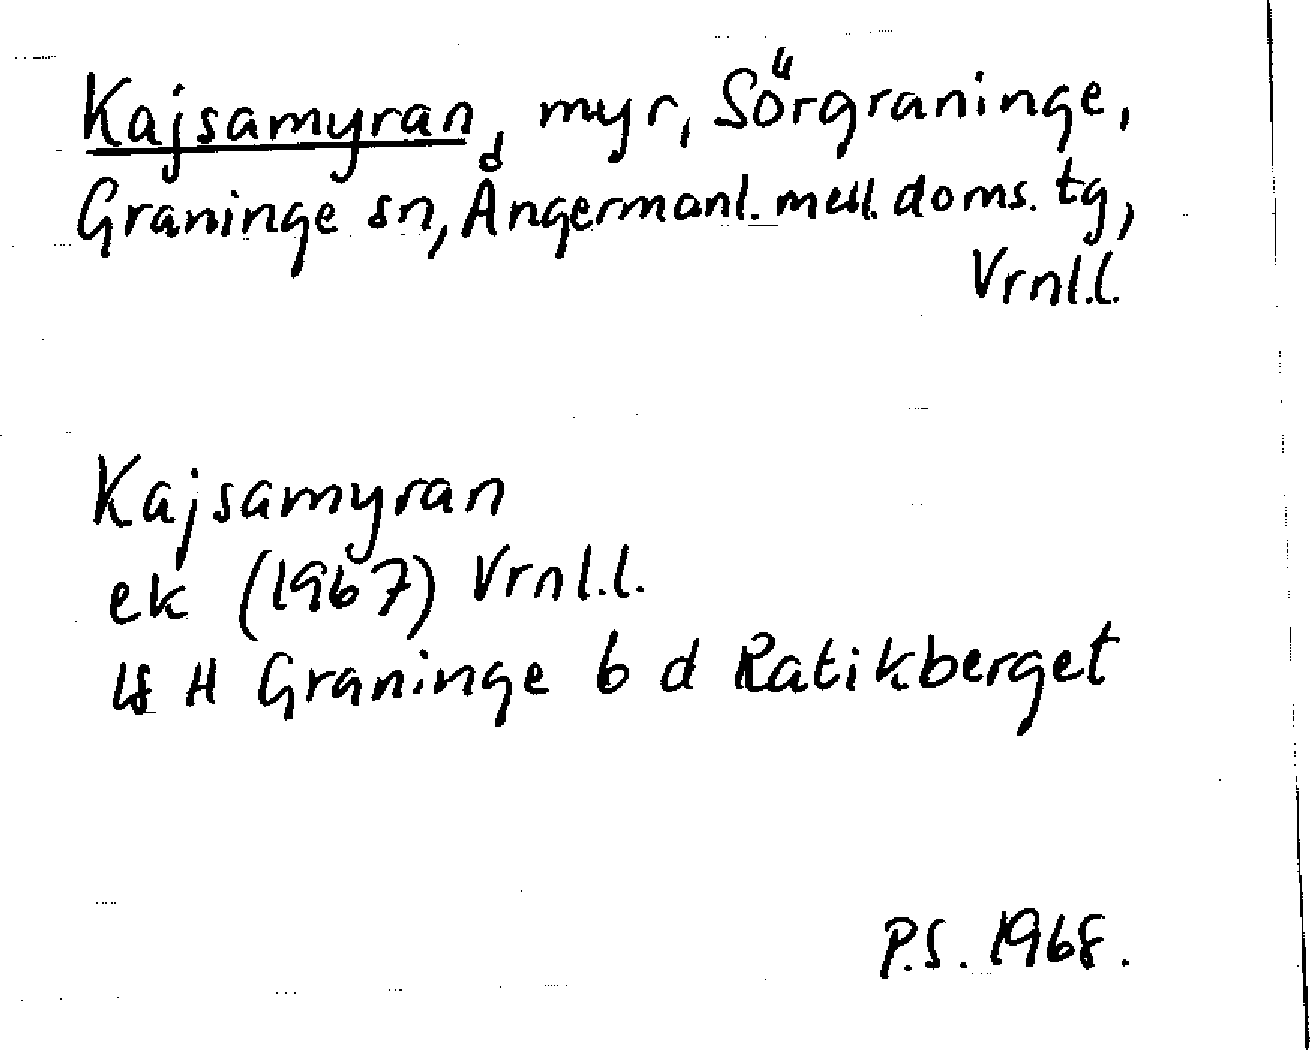 Kajsamyran, myr, Sörgraninge,
Graninge sn, Ångermanl. mell. doms. tg,
Vrnl.l.
Kajsamyran
ek (1967) Vrnl.l.
H Graninge b d Ratikberget
P.S. 1968.